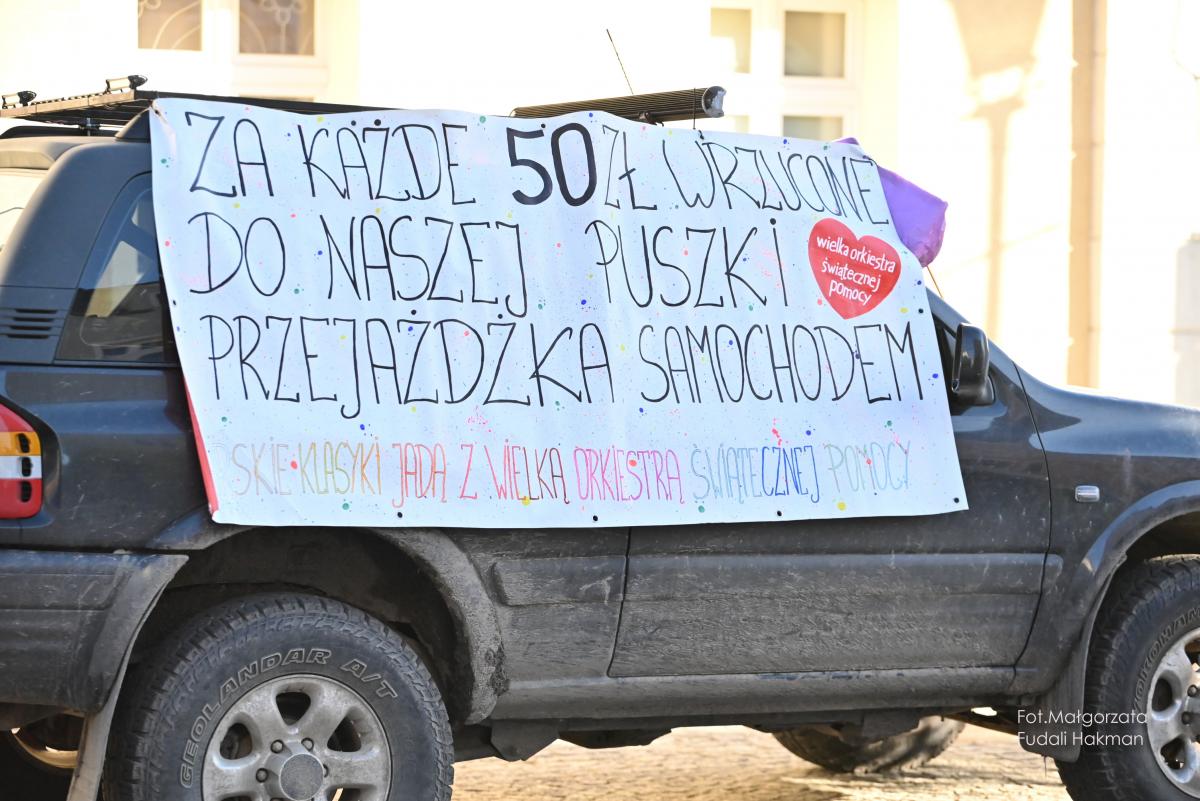 ZA KAŻDE 50 ZŁ WRZUCONE
DO NASZEJ PUSZKI
wielka orkiestra
świątecznej
pomocy
PRZEJAŻDŻKA SAMOCHODEM
KLASYKI JADĄ Z WIELKĄ ORKIESTRĄ ŚWIĄTECZNEJ POMOCY
GEOLANDAR A/T
Fot.Małgorzata
Fudali Hakman